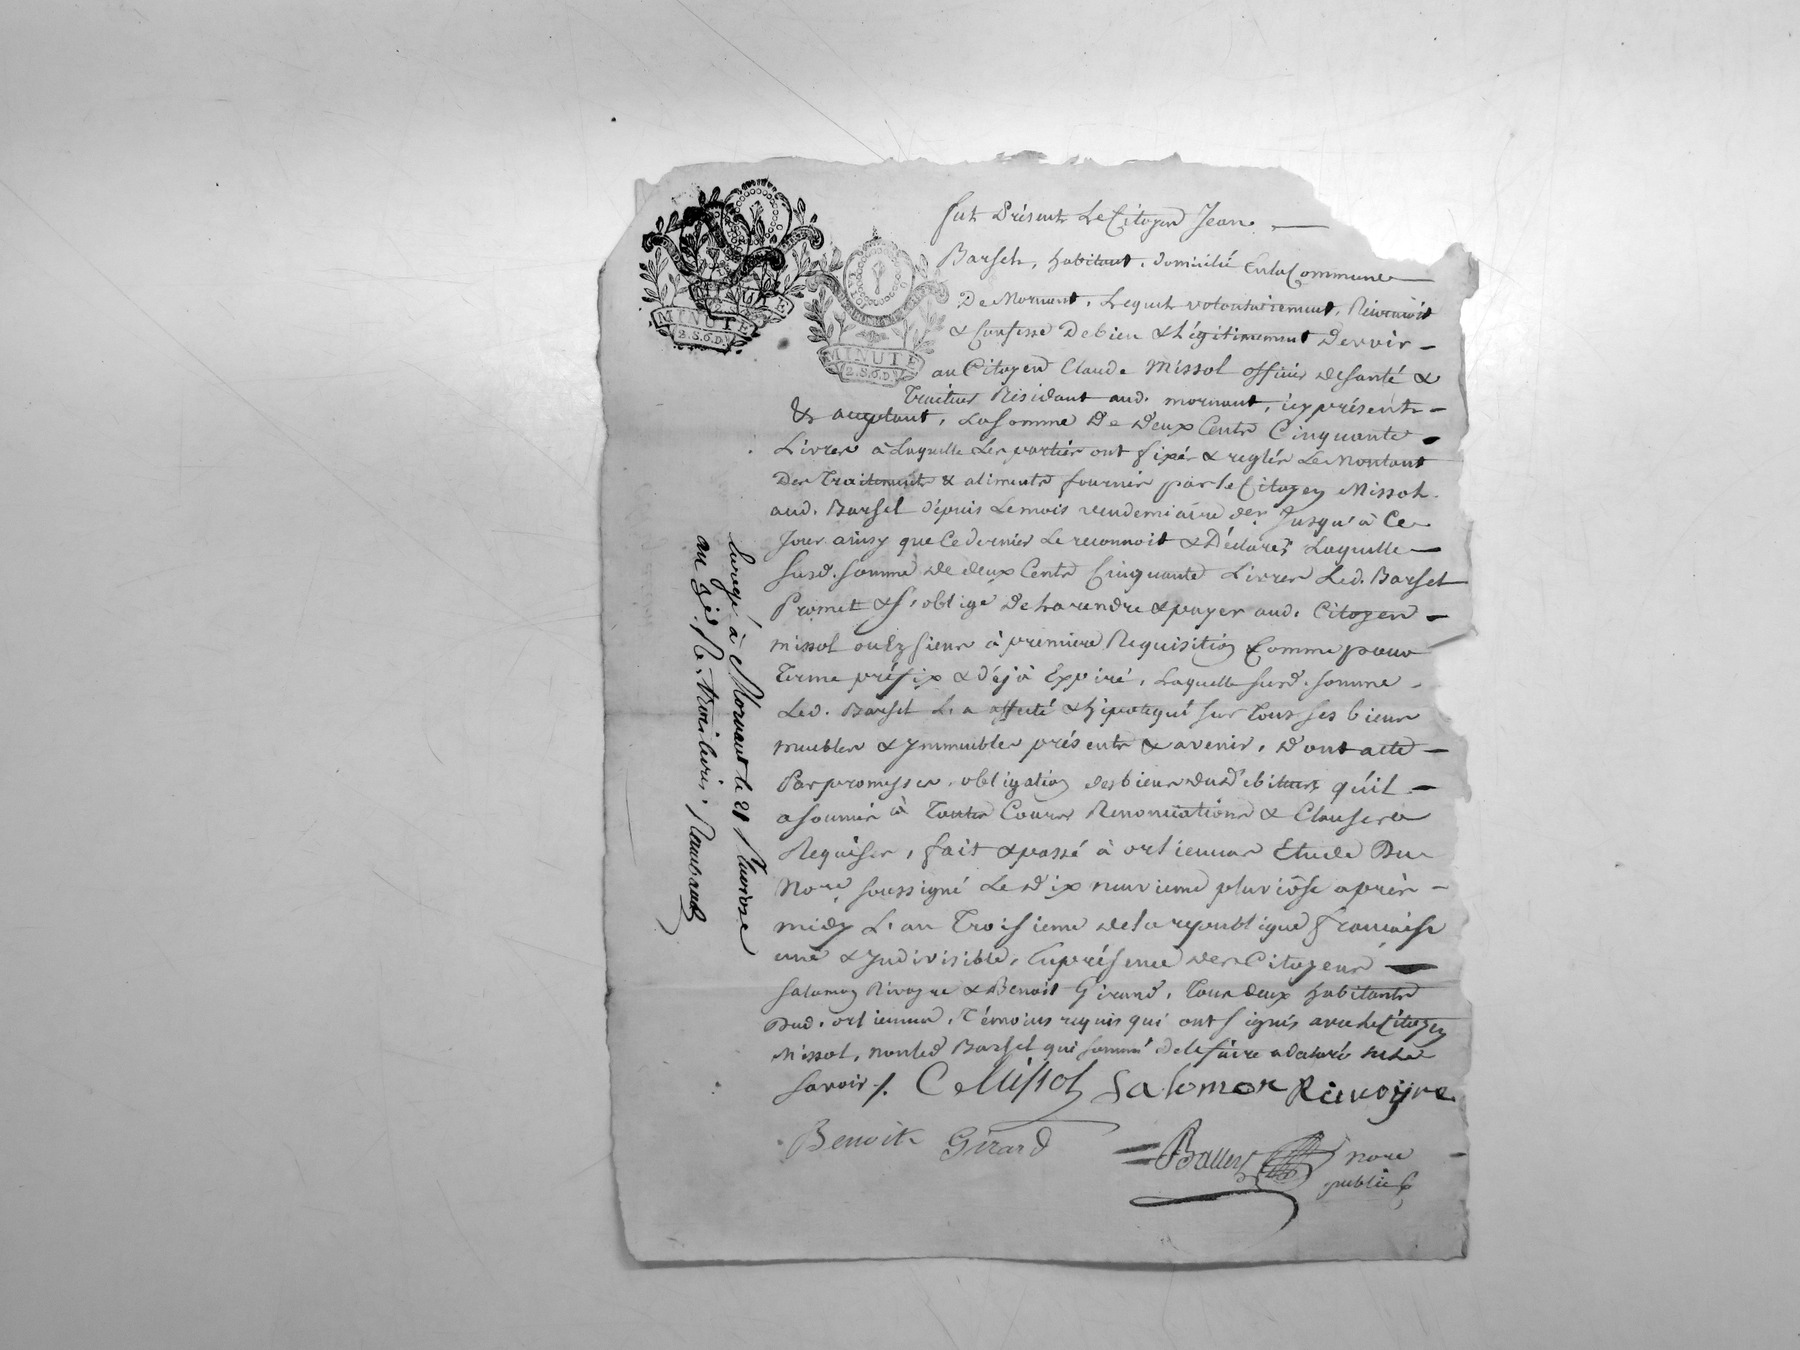 MINUTE
2.S.6.D.
MINUTE
2.S.6.D.
fut Présent Le Citoyen Jean
Barsel, habitant, domicilié En la Commune
De Mornant, Lequel volontairement, Reconnoit
& Confesse De bien & Légitimement Devoir
au Citoyen Claude Missol officier de santé &
Traiteur Résidant aud. mornant, icy présent
& acceptant, La somme De deux Cents Cinquante
Livres à Laquelle Les parties ont fixés & reglés Le Montant
Des Traitements & aliments fournis par le Citoyen Missol
aud. Barsel dépuis Le mois vendemiaire der. Jusqu'à Ce
Jour ainsy que Ce dernier Le reconnoit & Déclare; Laquelle
susd. somme de deux Cents Cinquante Livres Led. Barsel
Promet & s'oblige De La rendre & payer aud. Citoyen
missol ou Es siens à premiere Requisition Comme pour
Terme préfix & déjà Expiré, Laquelle susd. somme
Led. Barsel L'a affecté & hipotequé sur Tous ses biens
meubles & ymmeubles présents & avenir, D'ont acte
Par promesses, obligation des biens dud. débiteur qu'il
a soumis à Toutes Cours Renonciations & Clauses
Requises, fait & passé à orlienas Etude Du
No.re soussigné Le dix neuvieme pluviôse après
midy L'an Troisieme de la republique francaise
une & yndivisible, En présence des Citoyens
Salomon Rivoyre & Benoit Girard, Tous deux habitants
Dud. orlienas, Témoins requis qui ont signés avec le Citoyen
Missol, non led Barsel qui sommé de le faire a declaré ne le
savoir ./. C Missol Salomon Rivoyre
Benoit Girard
Nore
public
Enregé à Mornant le 21 Pluviose
an 3e. Rambaud